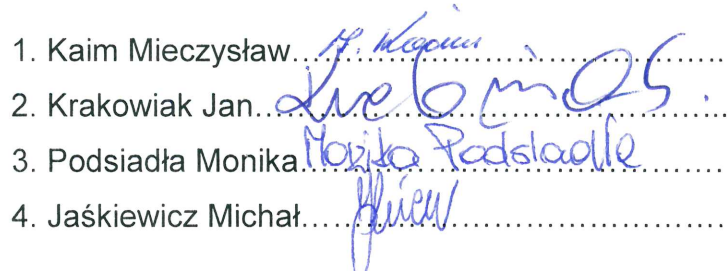 1. Kaim Mieczysław.. M. Kaim
2. Krakowiak Jan..
3. Podsiadła Monika Monika Podsiadła
4. Jaśkiewicz Michał....